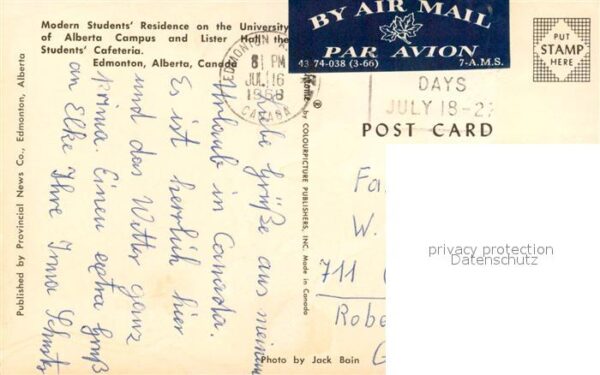 Modern Students' Residence on the University
of Alberta Campus and Lister Hall the
Students' Cafeteria.
Edmonton, Alberta, Canada
BY AIR MAIL
PAR AVION
43-74-038 (3-66) 7-A.M.S.
PUT
STAMP
HERE
EDMONTON
8 PM
JUL 16
1968
CANADA
DAYS
JULY 18-27
POST CARD
Published by Provincial News Co., Edmonton, Alberta
Liebe Grüße aus meinem
Urlaub in Canada.
Es ist herrlich hier
und das Wetter ganz
prima. Einen extra Gruß
an Elke Ihre Irma
by COLOURPICTURE PUBLISHERS, INC. Made in Canada
®
Fa
W.
711
Robe
G
privacy protection
Datenschutz
Photo by Jack Bain